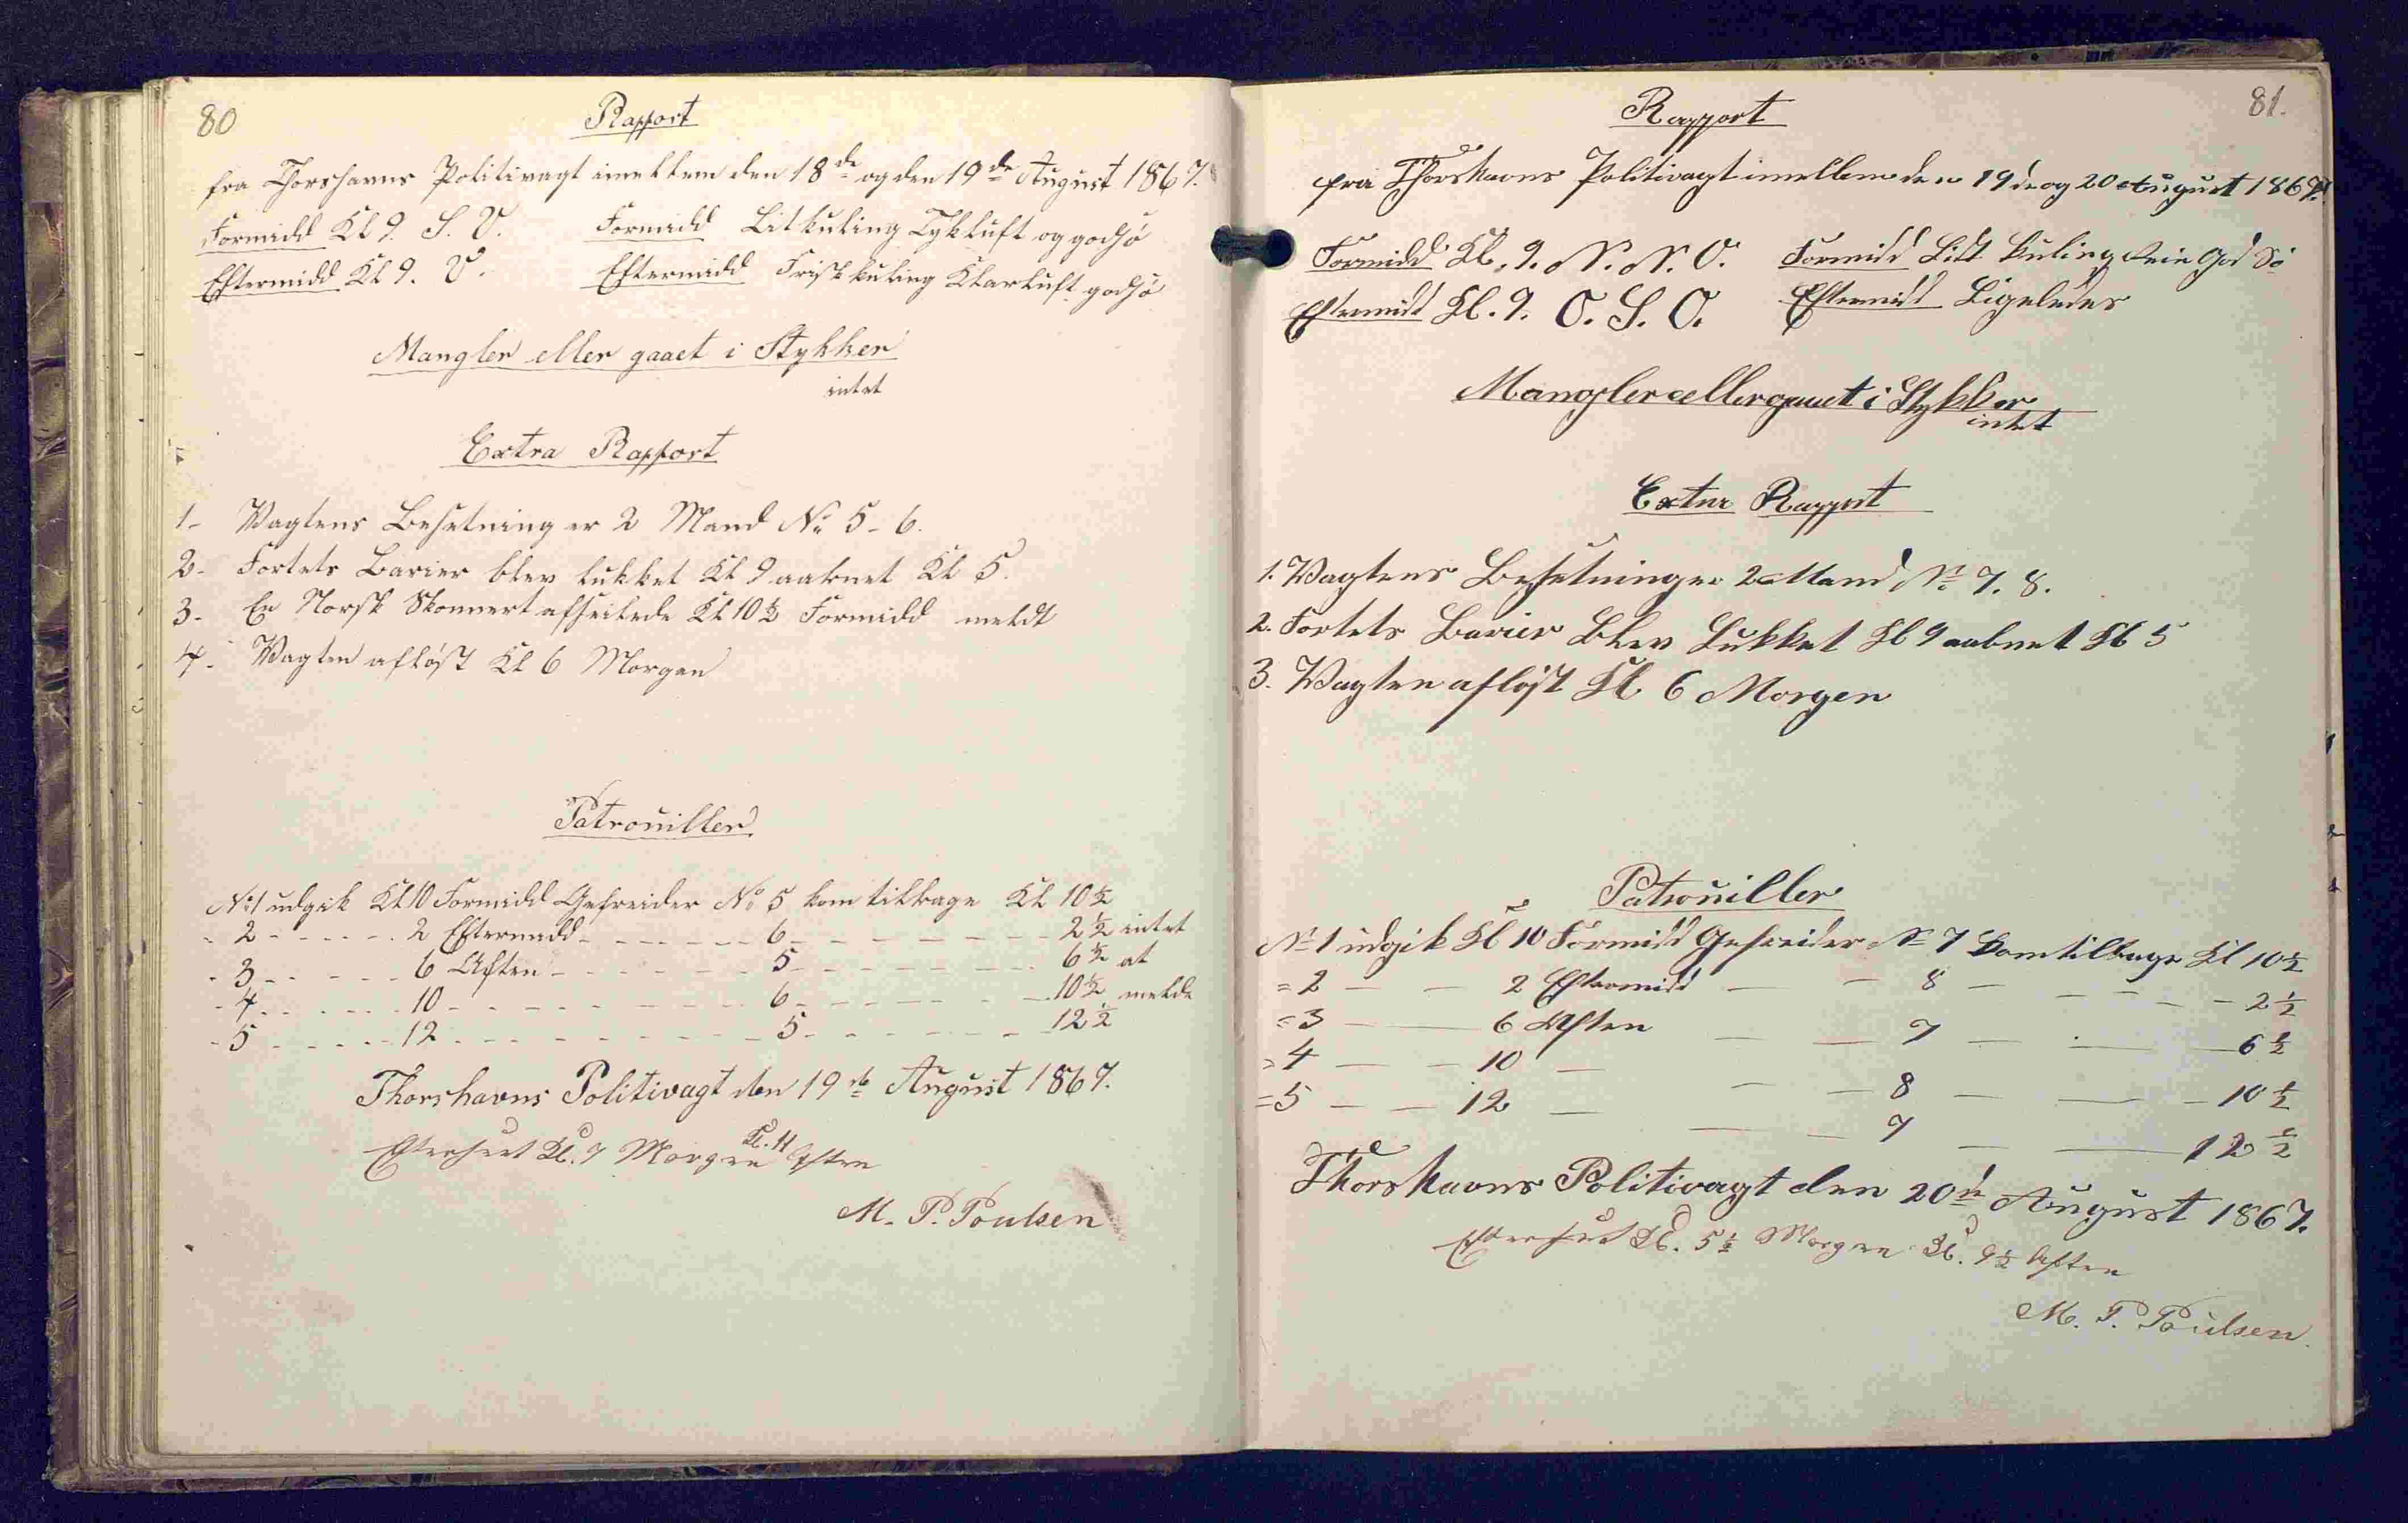 80
Rapport
fra Thorshavns Politivagt imellem den 18de og den 19de August 1867.
Formidd Kl 9. S. V. Formidd Litkuling Tykluft og godsø
Eftermidd Kl 9. V. Eftermidd Frisk kuling Klarluft godsø
Mangler eller gaaet i Stykker
intet
Extra Rapport
1- Vagtens Besetning er 2 Mand No 5-6.
2- Fortets Barier blev lukket Kl 9 aabnet Kl 5.
3- En Norsk Skonnert afseilede Kl 10½ Formidd meldt
4- Vagten afløst Kl 6 Morgen
Patrouiller
No 1 udgik Kl 10 Formidd Gefreider No 5 kom tilbage Kl 10½
- 2 - - - - - 2 Eftermidd - - - - - - 6 - - - - - - - 2½ intet
- 3 - - - - - 6 Aften - - - - - - 5 - - - - - - - 6½ at
- 4 - - - - - 10 - - - - - - - - 6 - - - - - - - 10½ melde
- 5 - - - - - 12 - - - - - - - - 5 - - - - - - - 12½
Thorshavns Politivagt den 19de August 1867.
Efterseet Kl. 7 Morgen Kl. 11 Aften
M. P. Poulsen
81.
Rapport
fra Thorshavns Politivagt imellem den 19de og 20 August 1867.
Formidd Kl. 9. N. N. O. Formidd Lidt Kuling Fein God Sö
Eftermidt Kl. 9. O. S. O. Eftermidd Ligeledes
Mangler eller gaaet i Stykker
intet
Extra Rapport
1. Vagtens Besetning er 2 Mand No 7. 8.
2. Fortets Barier Blev Lukket Kl 9 aabnet Kl 5
3. Vagten afløst Kl 6 Morgen
Patrouiller
No 1 udgik Kl 10 Formidd Gefreider No 7 Kom tilbage Kl 10½
= 2 — — 2 Eftermidd — — 8 — — — — 2½
= 3 — — 6 Aften — — 7 — — — 6½
= 4 — — 10 — — — 8 — — — 10½
= 5 — — 12 — — — 7 — — 12½
Thorshavns Politivagt den 20de August 1867.
Efterseet Kl. 5½ Morgen Kl. 9½ Aften
M. P. Poulsen